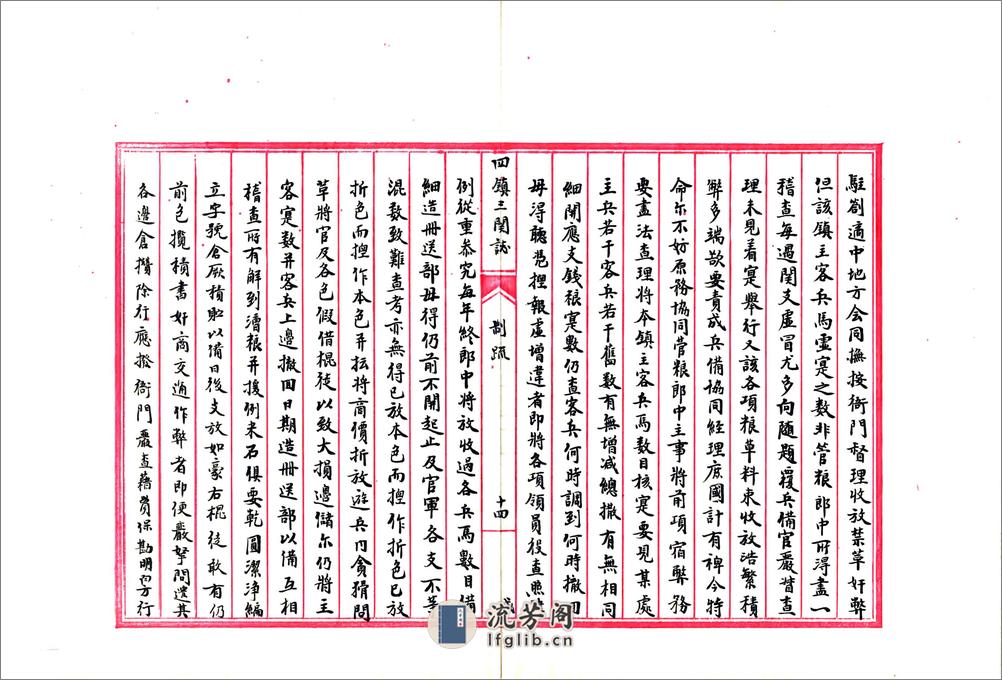 駐劄適中地方会同撫按衙門督理收放禁草奸弊
但該鎮主客兵馬虛寔之数非管粮郎中所得盡一
稽查每遇関支虛冒尤多向随題覆兵備官嚴督查
理未見着寔舉行又該各項粮草料束收放浩繁積
弊多端欲要責成兵備協同経理庶國計有裨今特
命尓不妨原務協同管粮郎中主事將前項宿弊務
要盡法查理將本鎮主客兵馬数目核寔要見某處
主兵若干客兵若干舊数有無增减總撒有無相同
細開應支錢粮寔数仍查客兵何時調到何時撤回
毋得聽憑捏報虛增違者即將各項領員役查照
四鎮三関誌 制疏 十四
例從重叅究每年終郎中將放收過各兵馬數目備
細造冊送部毋得仍前不開起止及官軍各支不等
混数致難查考亦無得已放本色而捏作折色已放
折色而捏作本色并抎將商價折放遊兵内貪猾問
草將官及各色假借棍徒以致大損邊儲尓仍將主
客寔数并客兵上邊撤回日期造冊送部以俻互相
稽查所有解到漕粮并援例米石俱要乾圓潔浄編
立字號倉厫積貯以俻日後支放如豪右棍徒敢有仍
前包攬積書奸商交通作弊者即便嚴拏問遣其
各邊倉攢除行應撥衙門嚴查籍貫保勘明白方行
流芳阁
lfglib.cn